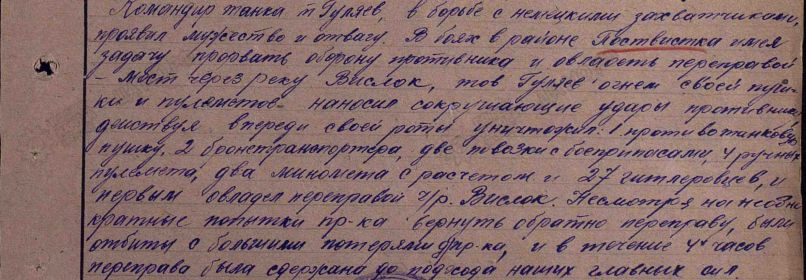 Командир танка т Гуляев, в борьбе с немецкими захватчиками,
проявил мужество и отвагу. В боях в районе Поствистка имея
задачу прорвать оборону противника и овладеть переправой
- мост через реку Вислок, тов Гуляев огнем своей пуш-
ки и пулеметов наносил сокрушающие удары противнику
действуя впереди своей роты уничтожил: 1 противотанковую
пушку, 2 бронетранспортера, две повозки с боеприпасами, 4 ручных
пулемета, два миномета с расчетом и 27 гитлеровцев, и
первым овладел переправой ч/р. Вислок. Несмотря на неодно
кратные попытки пр-ка вернуть обратно переправу, были
отбиты с большими потерями пр-ка, и в течение 4х часов
переправа была сдержана до подхода наших главных сил